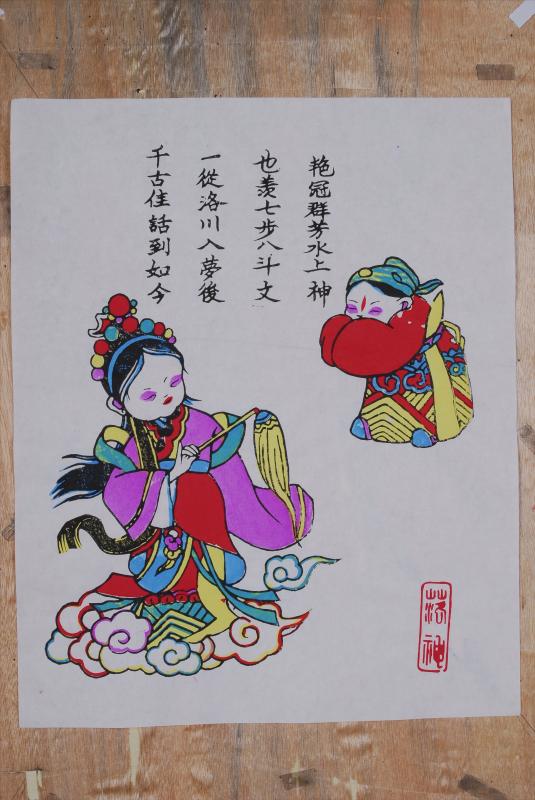 艳冠群芳水上神
也羡七步八斗文
一從洛川入夢後
千古佳話到如今
落神